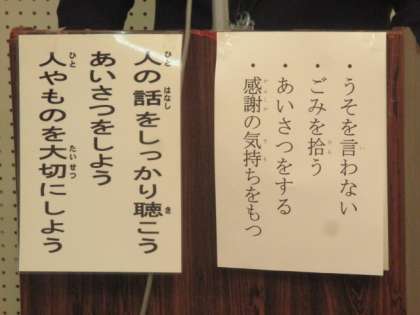 ・うそを言わない
・ごみを拾う
・あいさつをする
・感謝の気持ちをもつ
人の話をしっかり聴こう
あいさつをしよう
人やものを大切にしよう